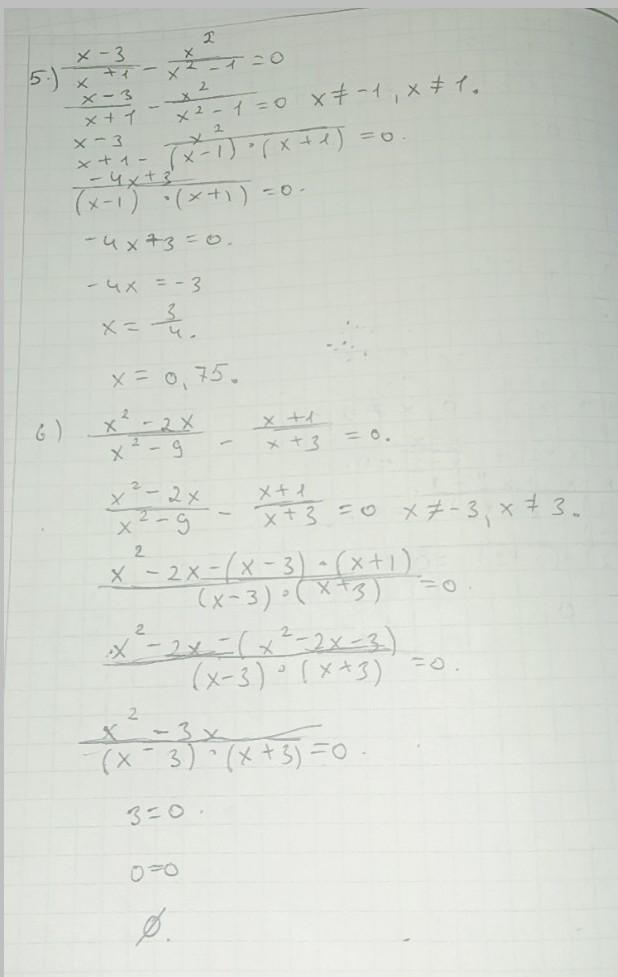 5.) (x-3)/(x+1) - x²/(x²-1) = 0
(x-3)/(x+1) - x²/(x²-1) = 0 x≠-1, x≠1.
x-3
x+1 - x²/((x-1)·(x+1)) = 0.
(-4x+3)/((x-1)·(x+1)) = 0.
-4x+3=0.
-4x = -3
x = 3/4.
x = 0,75.
6) (x²-2x)/(x²-9) - (x+1)/(x+3) = 0.
(x²-2x)/(x²-9) - (x+1)/(x+3) = 0 x≠-3, x≠3.
(x²-2x-(x-3)·(x+1))/((x-3)·(x+3)) = 0.
(x²-2x-(x²-2x-3))/((x-3)·(x+3)) = 0.
(x²-3x)/((x-3)·(x+3)) = 0.
3=0.
0=0
∅.